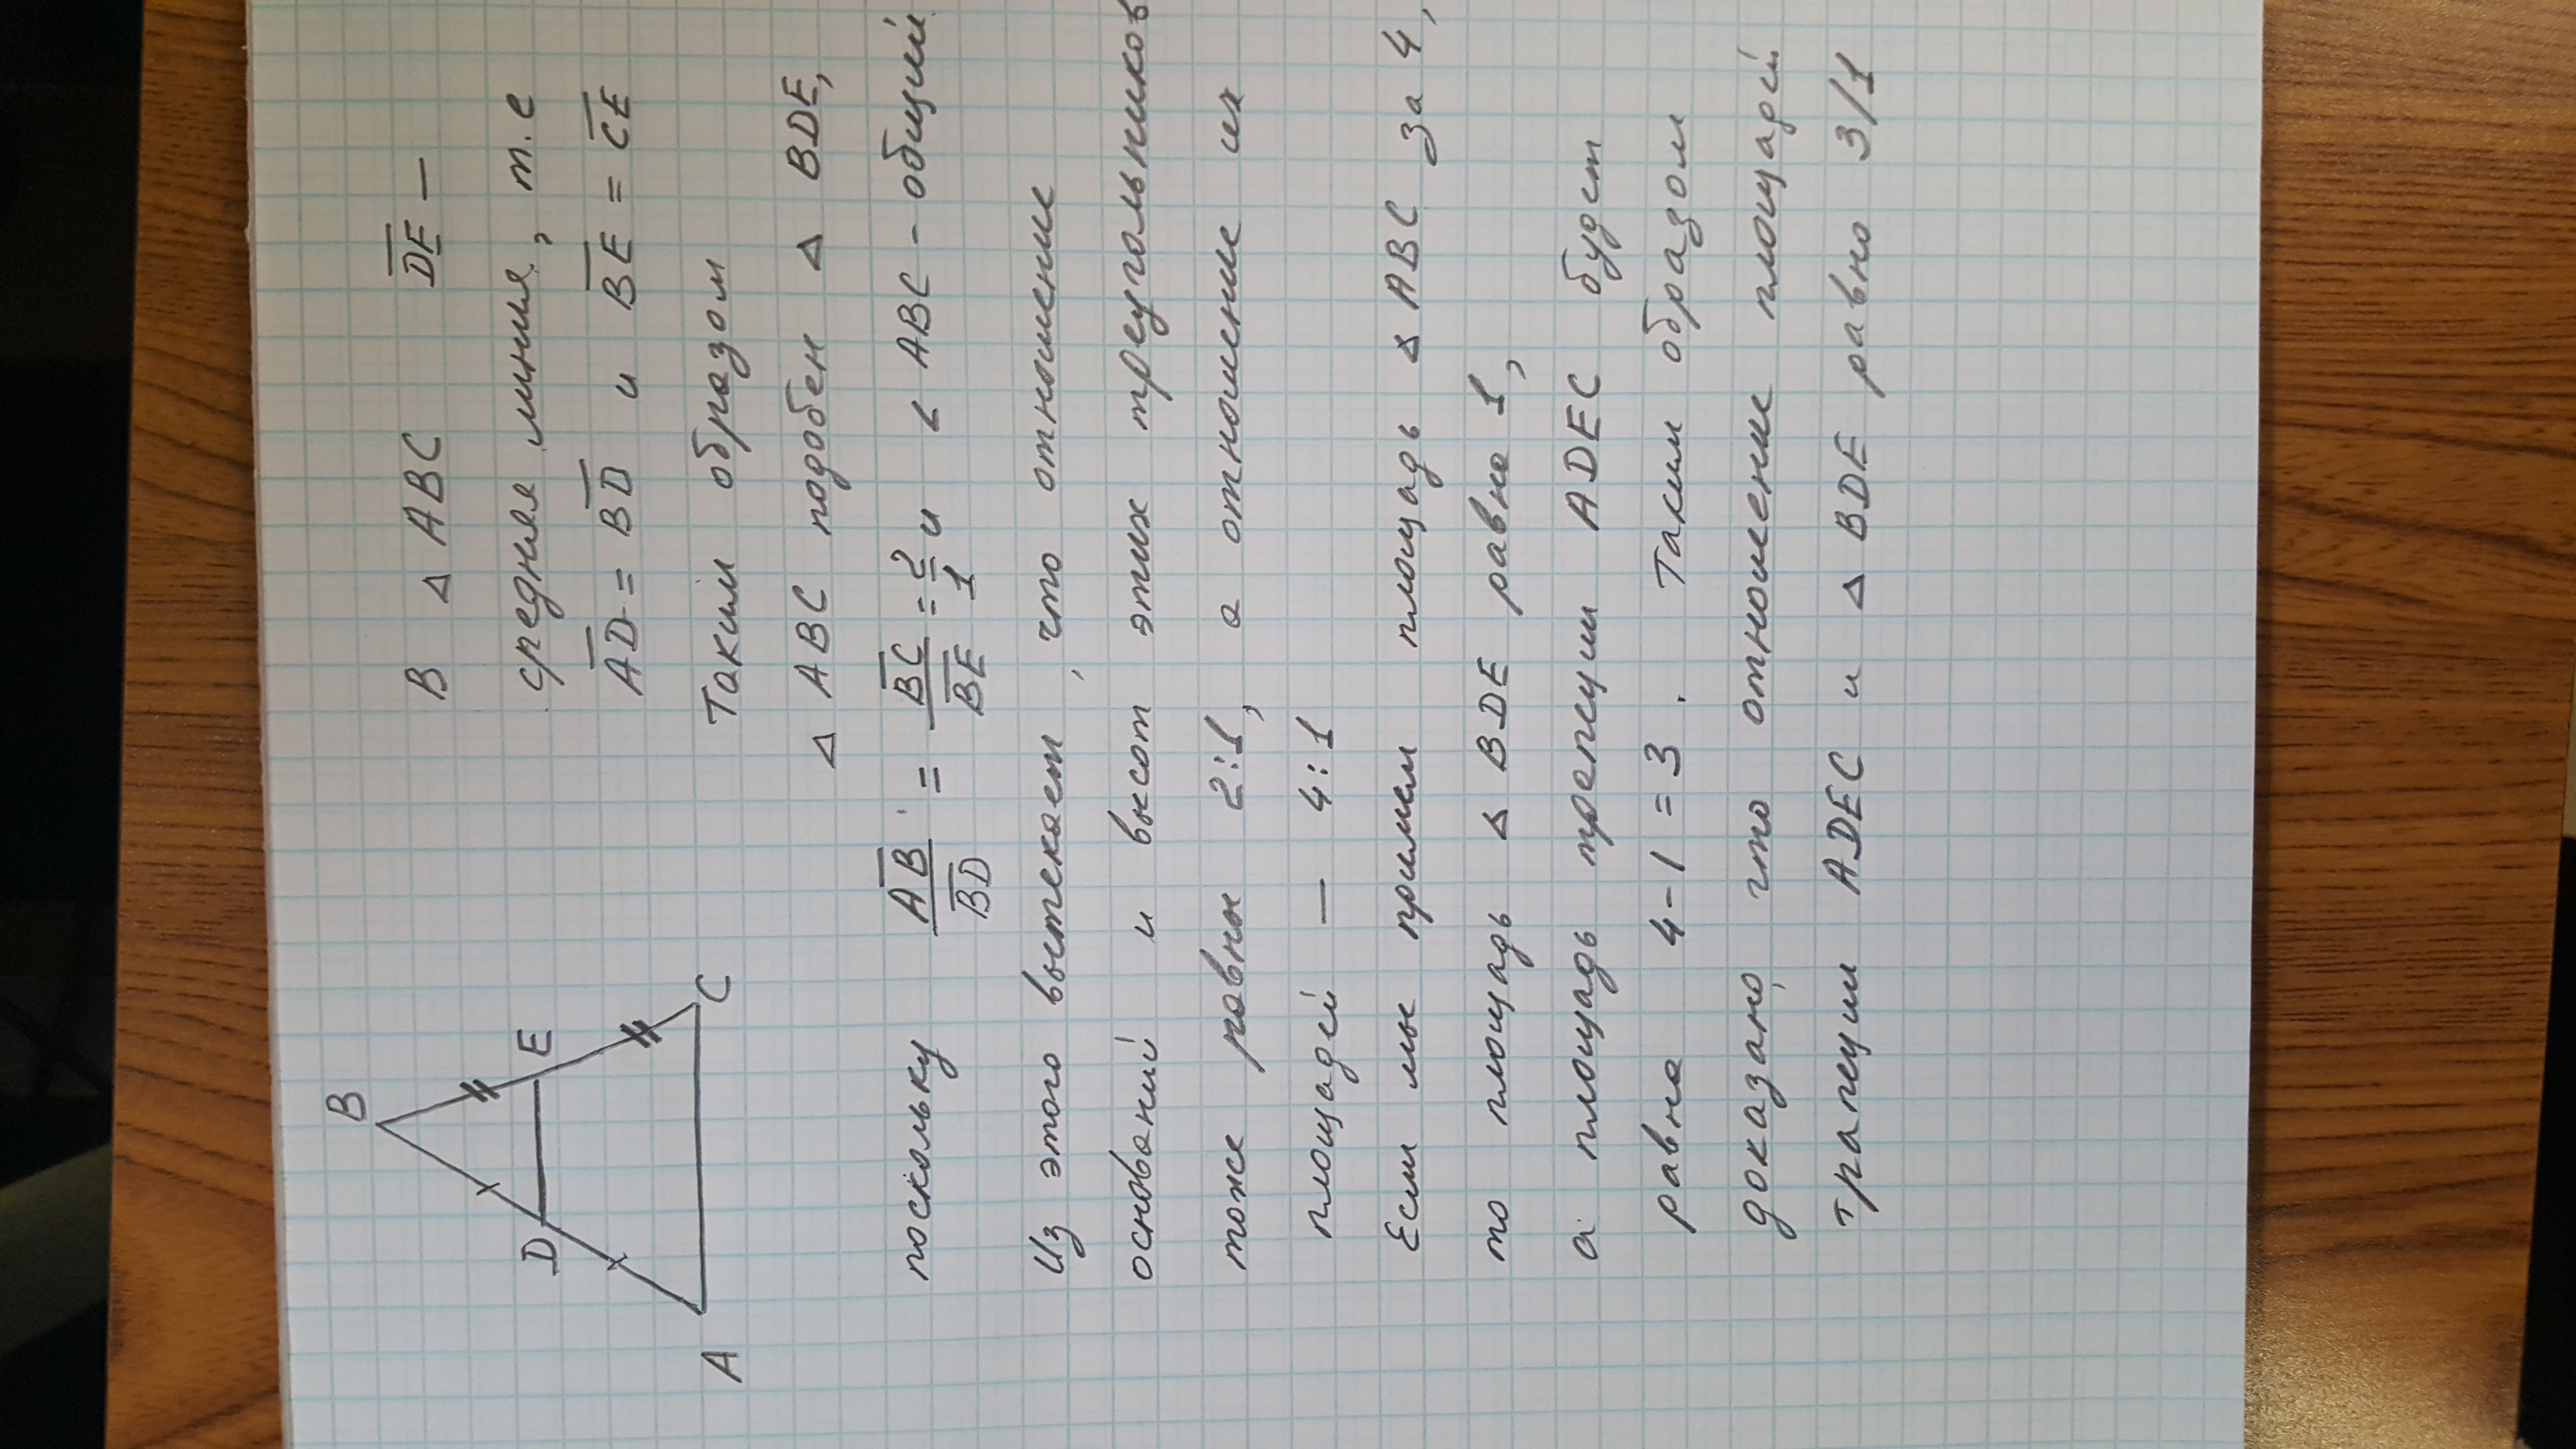 B
D
E
A
C
В △ ABC D̅E̅ –
средняя линия, т.е
A̅D̅ = B̅D̅ и B̅E̅ = C̅E̅
Таким образом
△ ABC подобен △ BDE,
поскольку A̅B̅/B̅D̅ = B̅C̅/B̅E̅ = 2/1 и < ABC - общий
Из этого вытекает, что отношение
оснований и высот этих треугольников
тоже равны 2:1, а отношение их
площадей — 4:1
Если мы примем площадь △ ABC за 4,
то площадь △ BDE равна 1,
а площадь трапеции ADEC будет
равна 4-1=3. Таким образом
доказано, что отношение площадей
трапеции ADEC и △ BDE равно 3/1